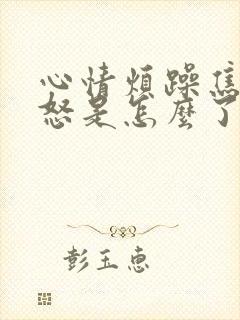 心情煩躁焦
怒是怎麼了
彭玉惠